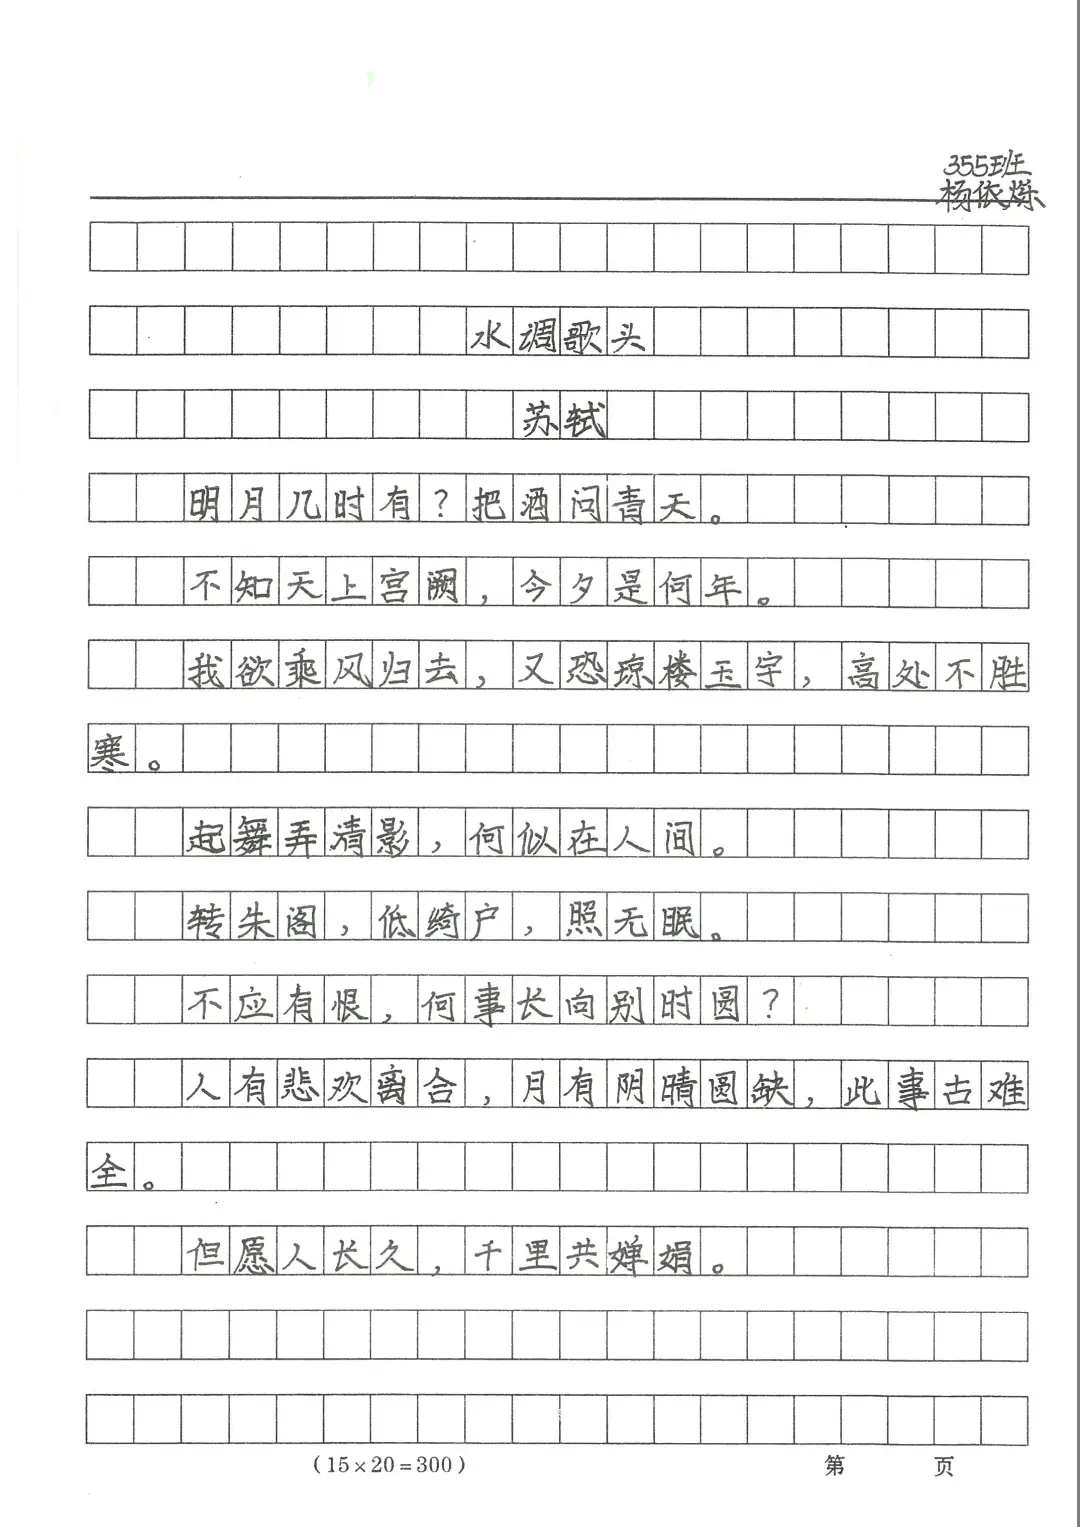 355班
杨依烁
水调歌头
苏轼
明月几时有？把酒问青天。
不知天上宫阙，今夕是何年。
我欲乘风归去，又恐琼楼玉宇，高处不胜
寒。
起舞弄清影，何似在人间。
转朱阁，低绮户，照无眠。
不应有恨，何事长向别时圆？
人有悲欢离合，月有阴晴圆缺，此事古难
全。
但愿人长久，千里共婵娟。
(15×20=300) 第 页